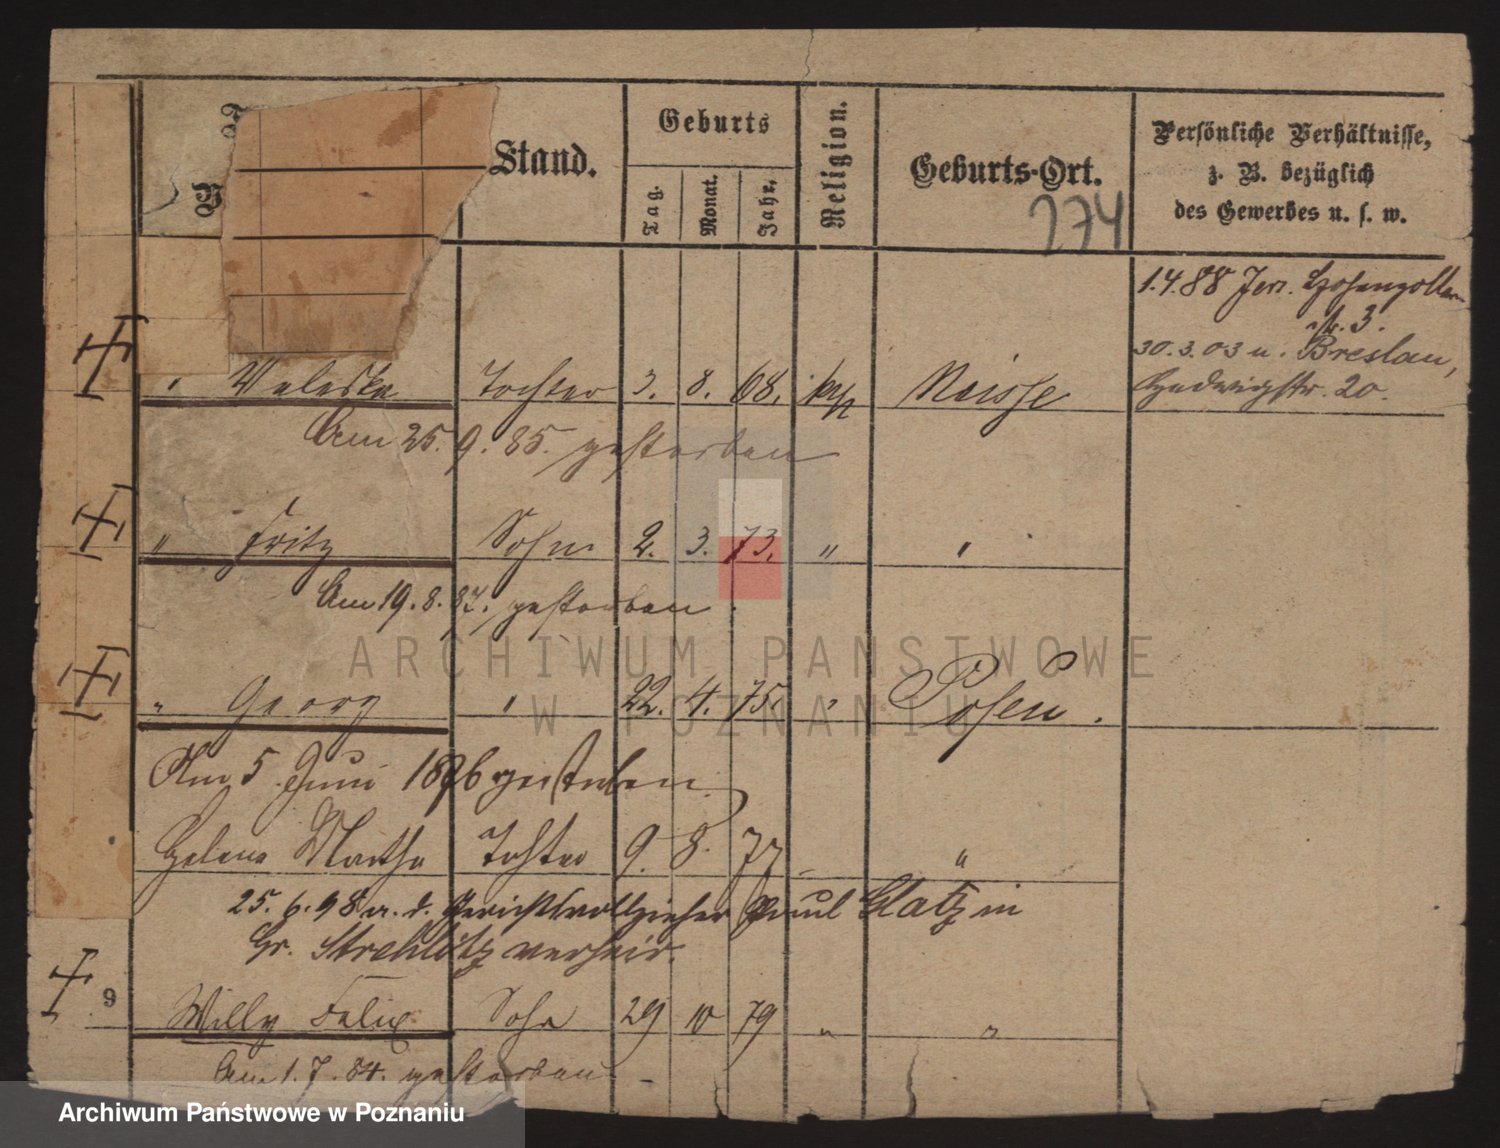 Stand.
Geburts
Tag.
Monat.
Jahr.
Religion.
Geburts-Ort.
Persönliche Verhältnisse,
z. B. bezüglich
des Gewerbes u. s. w.
274
1.4.88 Jer. Hohenzollern
str. 3.
30.3.03 u. Breslau,
Hedwigstr. 20.
" Valeska Tochter 3. 8. 68. kath Neisse
Am 25.9.85. gestorben
" Fritz Sohn 2. 3. 73. " "
Am 19.8.87. gestorben.
" Georg " 22. 4. 75. " Posen.
Am 5. Juni 1876 gestorben.
Helene Martha Tochter 9. 8. 77 "
25.6.98 a. d. Gerichtsvollzieher Paul Glatz in
Gr. Strehlitz verheir.
9
Willy Felix Sohn 29 10 79 " "
Am 1.7.84. gestorben
ARCHIWUM PAŃSTWOWE
W POZNANIU
Archiwum Państwowe w Poznaniu